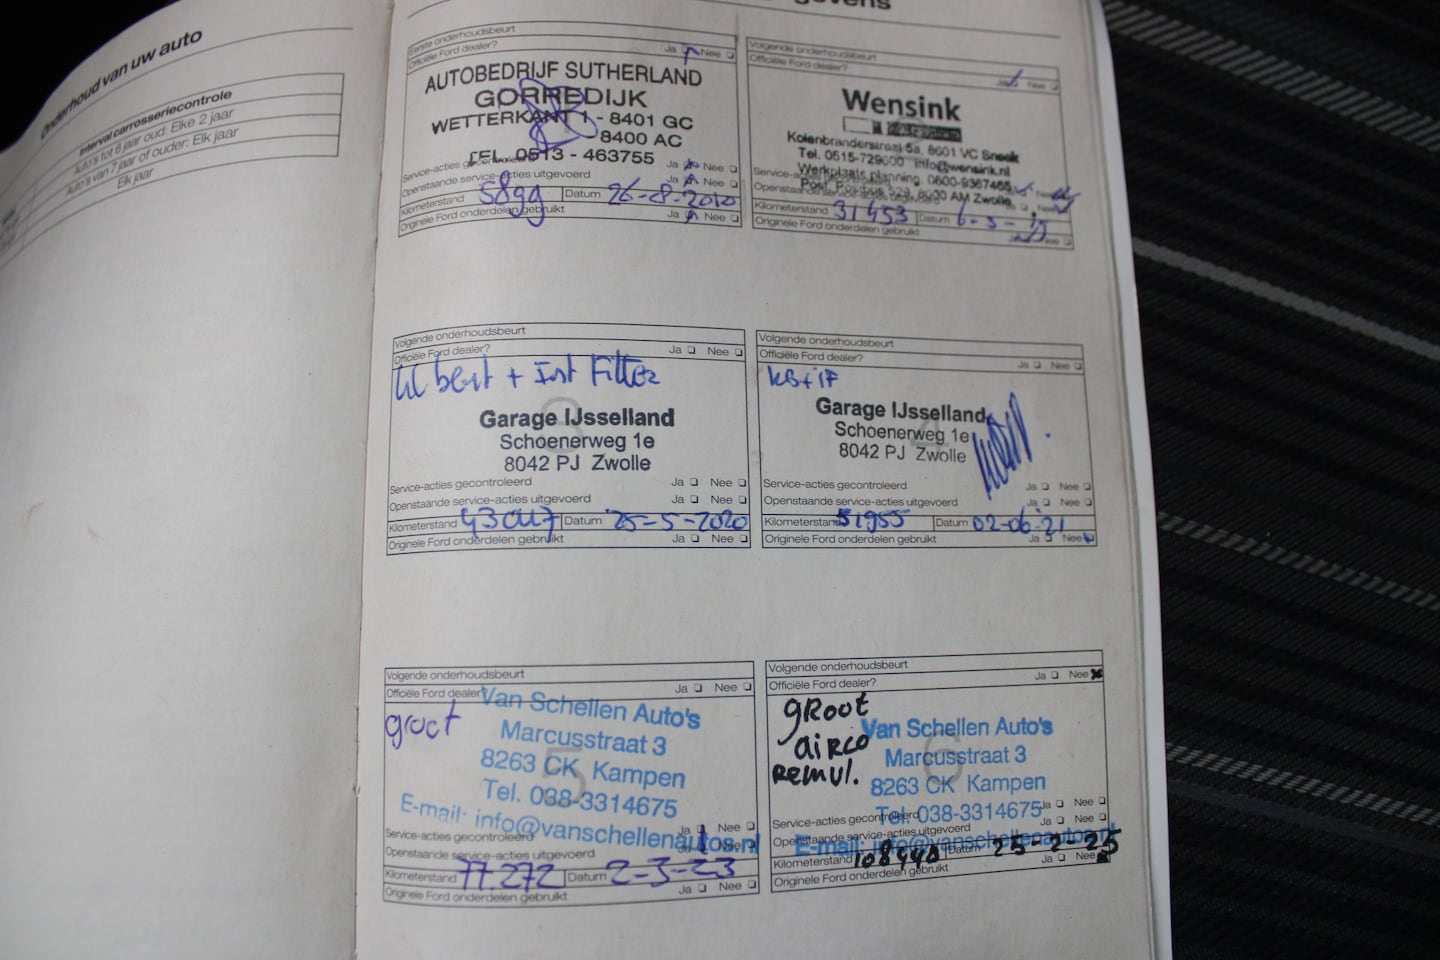 Onderhoud van uw auto
Interval carrosseriecontrole
Auto's tot 6 jaar oud: Elke 2 jaar
Auto's van 7 jaar of ouder: Elk jaar
Elk jaar
gevens
Eerste onderhoudsbeurt
Officiële Ford dealer? Ja Nee
AUTOBEDRIJF SUTHERLAND
GORREDIJK
WETTERKANT 1 - 8401 GC
8400 AC
TEL. 0513 - 463755
Service-acties gecontroleerd Ja Nee
Openstaande service-acties uitgevoerd Ja Nee
Kilometerstand 5899 Datum 26-8-2010
Originele Ford onderdelen gebruikt Ja Nee
Volgende onderhoudsbeurt
Officiële Ford dealer? Ja Nee
Wensink
Kolenbranderstraat 5a, 8601 VC Sneek
Tel. 0515-729000 info@wensink.nl
Werkplaats planning 0600-9367465
Post. Postbus 529, 8000 AM Zwolle
Kilometerstand 31453 Datum 6-3-19
Originele Ford onderdelen gebruikt Ja Nee
Volgende onderhoudsbeurt
Officiële Ford dealer? Ja Nee
beurt + Int Filter
3
Garage IJsselland
Schoenerweg 1e
8042 PJ Zwolle
Service-acties gecontroleerd Ja Nee
Openstaande service-acties uitgevoerd Ja Nee
Kilometerstand 43047 Datum 25-5-2020
Originele Ford onderdelen gebruikt Ja Nee
Volgende onderhoudsbeurt
Officiële Ford dealer? Ja Nee
KB+IF
4
Garage IJsselland
Schoenerweg 1e
8042 PJ Zwolle
Service-acties gecontroleerd Ja Nee
Openstaande service-acties uitgevoerd Ja Nee
Kilometerstand 51955 Datum 02-06-21
Originele Ford onderdelen gebruikt Ja Nee
Volgende onderhoudsbeurt
Officiële Ford dealer? Ja Nee
groot
5
Van Schellen Auto's
Marcusstraat 3
8263 CK Kampen
Tel. 038-3314675
E-mail: info@vanschellenautos.nl
Service-acties gecontroleerd Ja Nee
Openstaande service-acties uitgevoerd Ja Nee
Kilometerstand 77.272 Datum 2-3-23
Originele Ford onderdelen gebruikt Ja Nee
Volgende onderhoudsbeurt
Officiële Ford dealer? Ja Nee
gRoot
aiRco
Remvl.
6
Van Schellen Auto's
Marcusstraat 3
8263 CK Kampen
Tel. 038-3314675
E-mail: info@vanschellenautos.nl
Service-acties gecontroleerd Ja Nee
Openstaande service-acties uitgevoerd
Kilometerstand 108440 Datum 25-2-25
Originele Ford onderdelen gebruikt Ja Nee